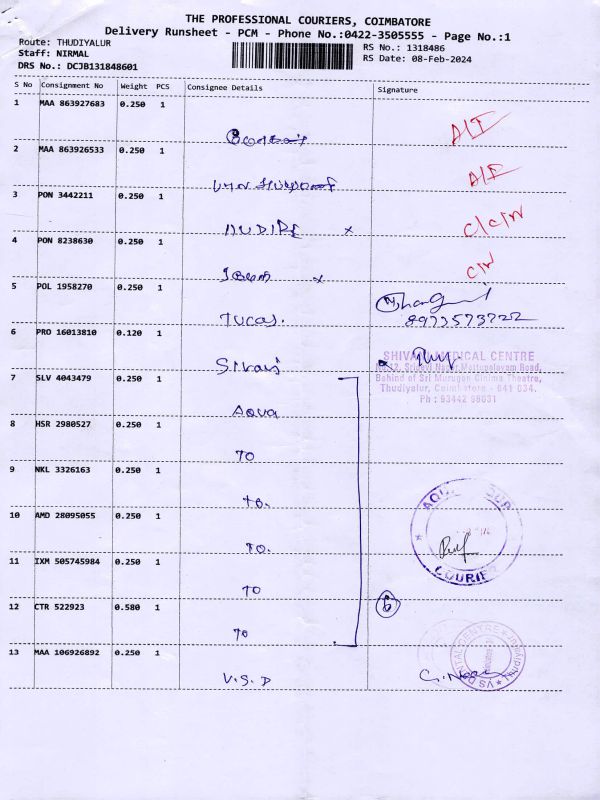 THE PROFESSIONAL COURIERS, COIMBATORE
Delivery Runsheet - PCM - Phone No.:0422-3505555 - Page No.:1
Route: THUDIYALUR
RS No.: 1318486
Staff: NIRMAL
RS Date: 08-Feb-2024
DRS No.: DCJB131848601
S No Consignment No Weight PCS Consignee Details Signature
1 MAA 863927683 0.250 1
D/I
2 MAA 863926533 0.250 1
D/I
3 PON 3442211 0.250 1
x C/C/N
4 PON 8238630 0.250 1
x C/N
5 POL 1958270 0.250 1
Tucas. 8973573722
6 PRO 16013810 0.120 1
SHIVANI MEDICAL CENTRE
Behind of Sri Murugan Cinima Theatre,
Thudiyalur, Coimbatore - 641 034.
Ph : 93442 98031
7 SLV 4043479 0.250 1
Aqua
8 HSR 2980527 0.250 1
TO
9 NKL 3326163 0.250 1
to.
10 AMD 28095055 0.250 1
TO.
11 IXM 505745984 0.250 1
TO
COURIER
12 CTR 522923 0.580 1
6
TO
13 MAA 106926892 0.250 1
V.S.D
VS DENTAL CENTRE